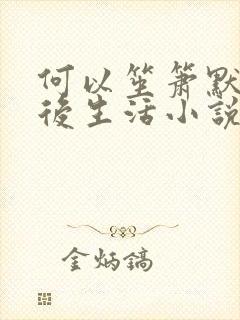 何以笙箫默
後生活小說
金炳鎬